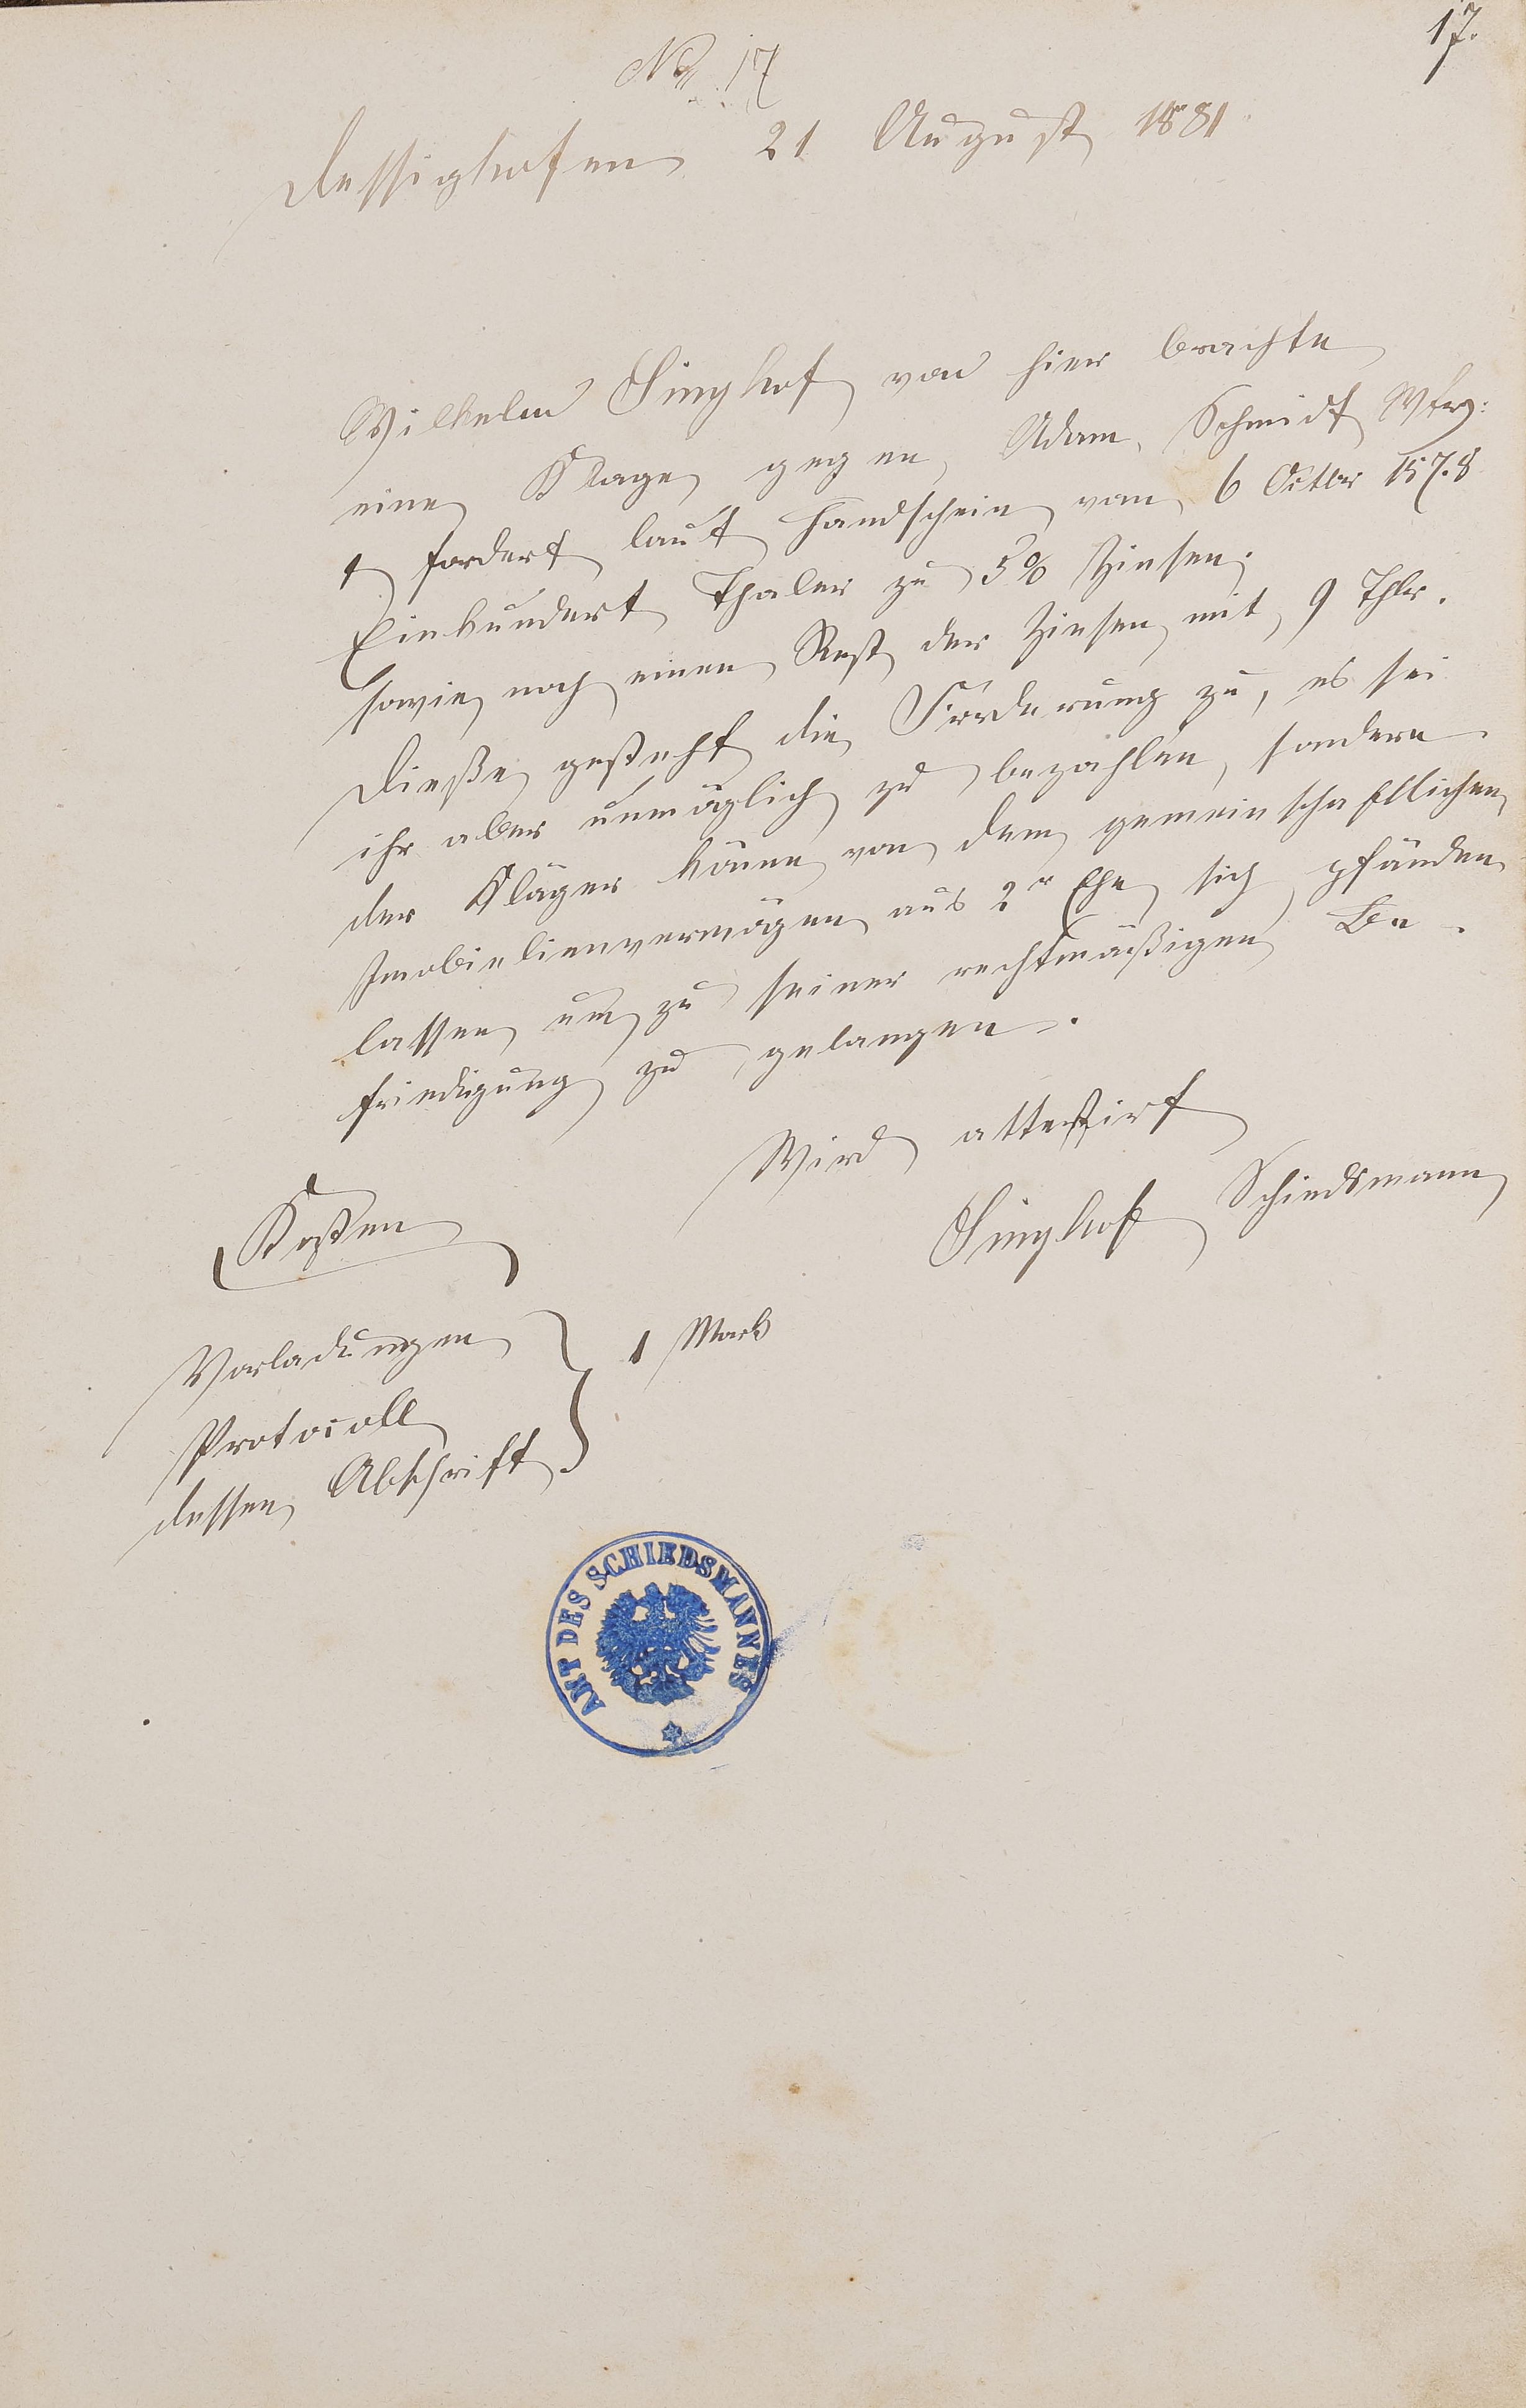 17.
No 17
Dessighofen 21 August 1881
Wilhelm Singhof von hier brachte
eine Klage gegen Adam Schmidt Wtw:
& fordert laut Handschein vom 6 Octbr 1878
Einhundert Thaler zu 5% Zinsen,
sowie noch einen Rest der Zinsen mit 9 Thlr.
Dieße gesteht die Forderung zu, es sei
ihr aber unmöglich zu bezahlen, sondern
der Kläger könne von dem gemeinschaftlichen
Imobielienvermögen aus 2r Ehe sich pfänden
lassen um zu seiner rechtmäßigen Be-
friedigung zu gelangen.
Wird attestirt
Singhof Schiedsmann
Kosten
Vorladungen
1 Mark
Protocoll
dessen Abschrift
AMT DES SCHIEDSMANNES